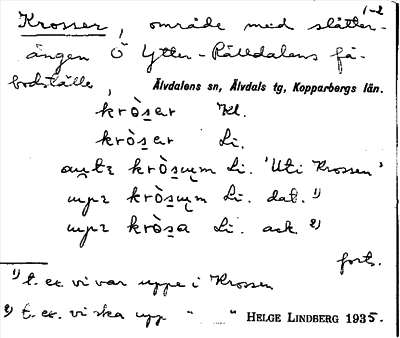 1-2
Krosser, område med slåtter-
ängen Ö Ytter-Rålldalens fä-
bodställe, Älvdalens sn, Älvdals tg, Kopparbergs län.
kròsar Kl.
kròsar Li.
kròsum Li. 'Uti Krossen'
kròsum Li. dat. 1)
kròsa Li. ack. 2)
forts.
1) t. ex. vi var uppe i Krossen
2) t. ex. vi ska upp " " HELGE LINDBERG 1935.